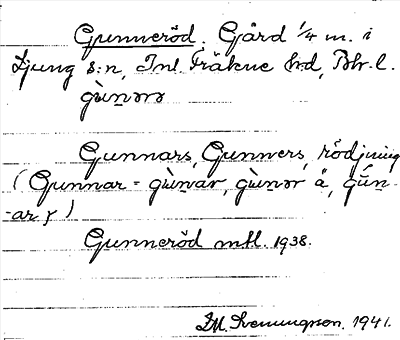 Gunneröd. Gård 1/4 m. i
Ljung s:n, Inl. Fräkne h:d, Boh. l.
gùnərə
Gunnars, Gunners, rödjning
(Gunnar = gùnar, gùnər å, gǔn-
-ar y)
Gunneröd mtl. 1938.
1941.